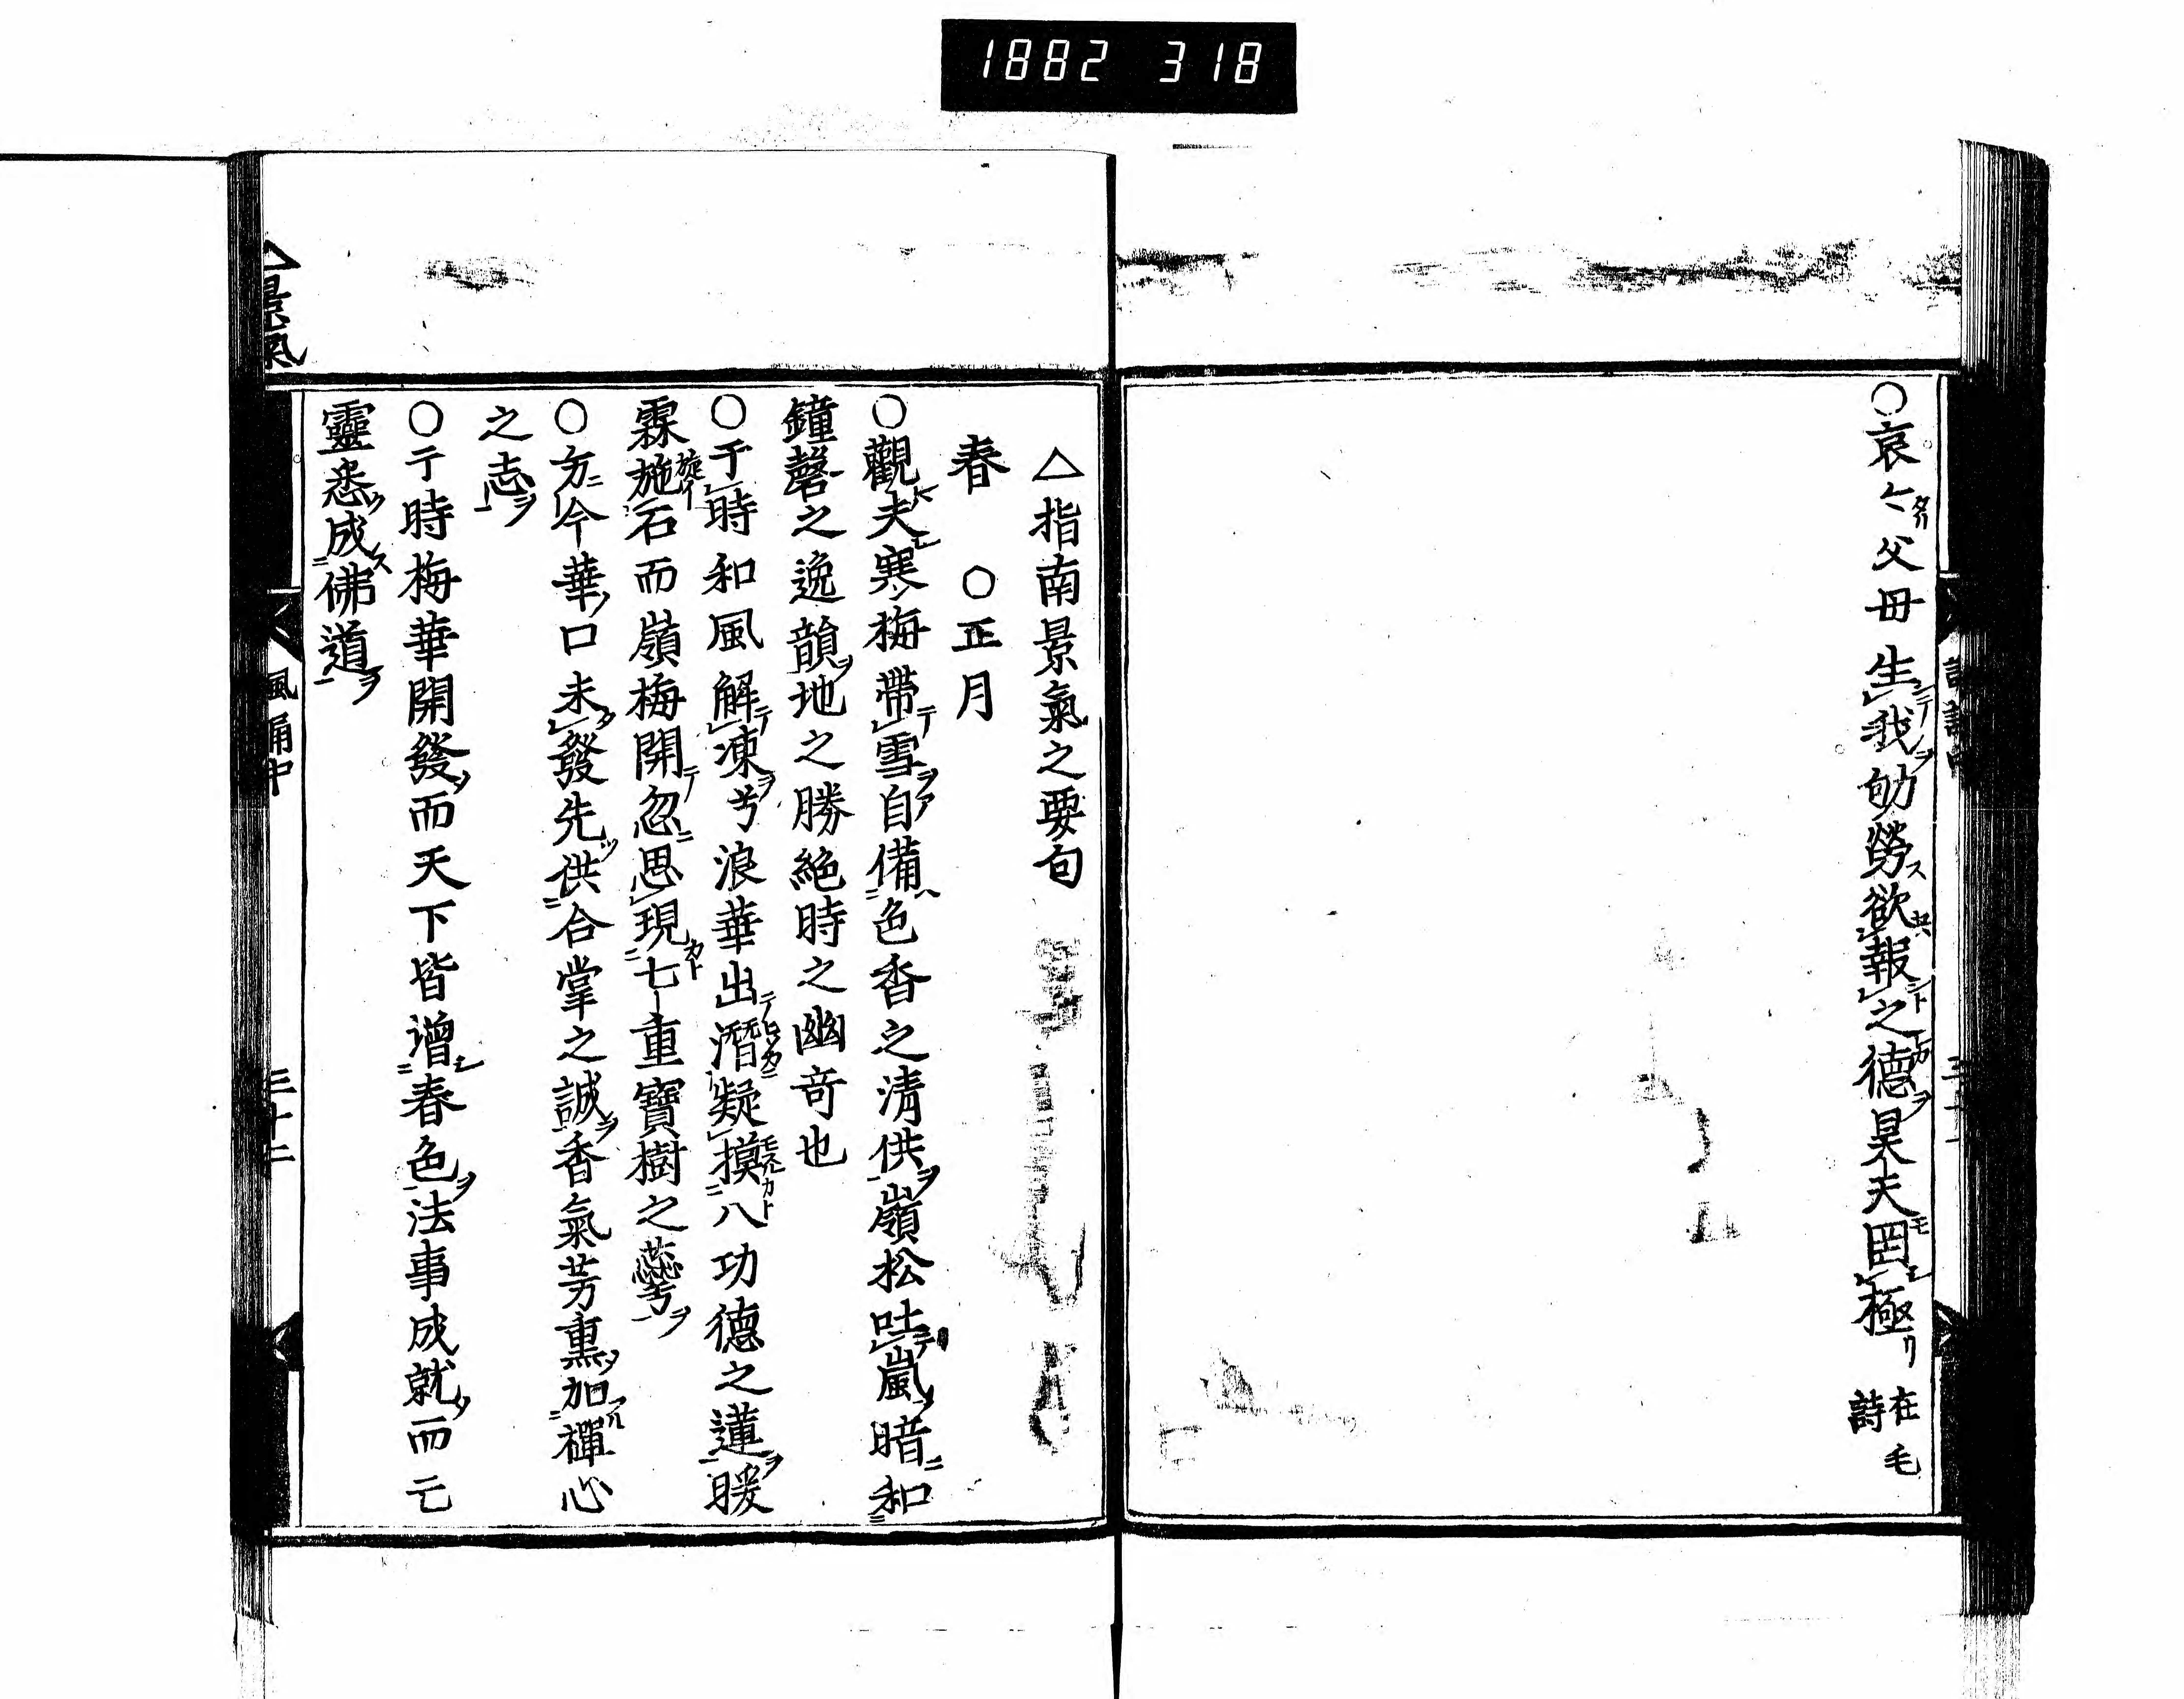 1882 318
○哀〻父母生我劬勞欲報之德昊天罔極 在毛詩
△指南景氣之要句
春 ○正月
○觀夫寒梅帶雪自備色香之清供嶺松吐嵐暗和
鐘磬之逸韻地之勝絕時之幽奇也
○于時和風解凍兮浪華出潛凝摸八功德之蓮暖
霖施石而嶺梅開忽思現七重寶樹之蘂兮
○方今華口未發先供合掌之誠香氣芳熏加禪心
之志
○于時梅華開發而天下皆增春色法事成就而亡
靈悉成佛道
△景氣
風誦中
三十二